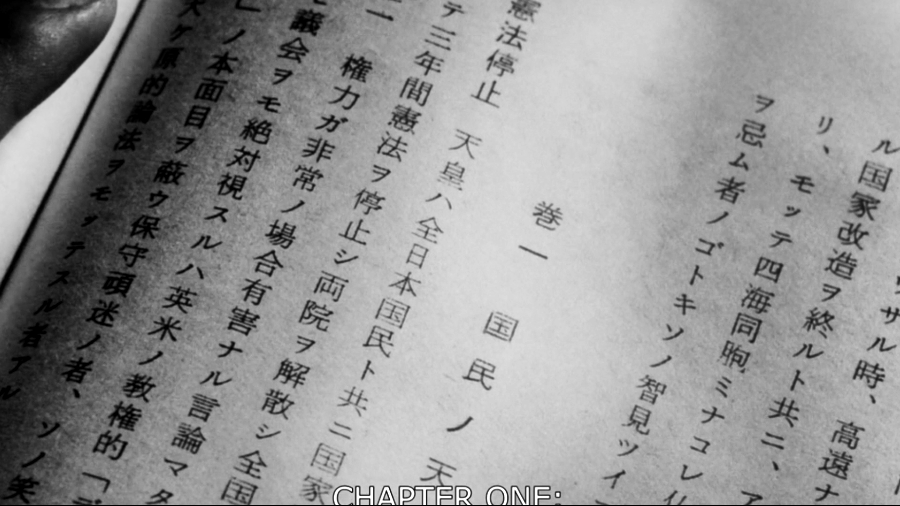 ウサル時、高遠ナ
ル国家改造ヲ終ルト共ニ、ア
リ、モッテ四海同胞ミナコレ
ヲ忌ム者ノゴトキソノ智見ツイ
巻一 国民ノ天
憲法停止 天皇ハ全日本国民ト共ニ国家
テ三年間憲法ヲ停止シ両院ヲ解散シ全国
一 権力ガ非常ノ場合有害ナル言論マタ
議会ヲモ絶対視スルハ英米ノ教権的「デ
」ノ本面目ヲ蔽ウ保守頑迷ノ者、ソノ笑
ケ原的論法ヲモッテスル者アル
CHAPTER ONE: